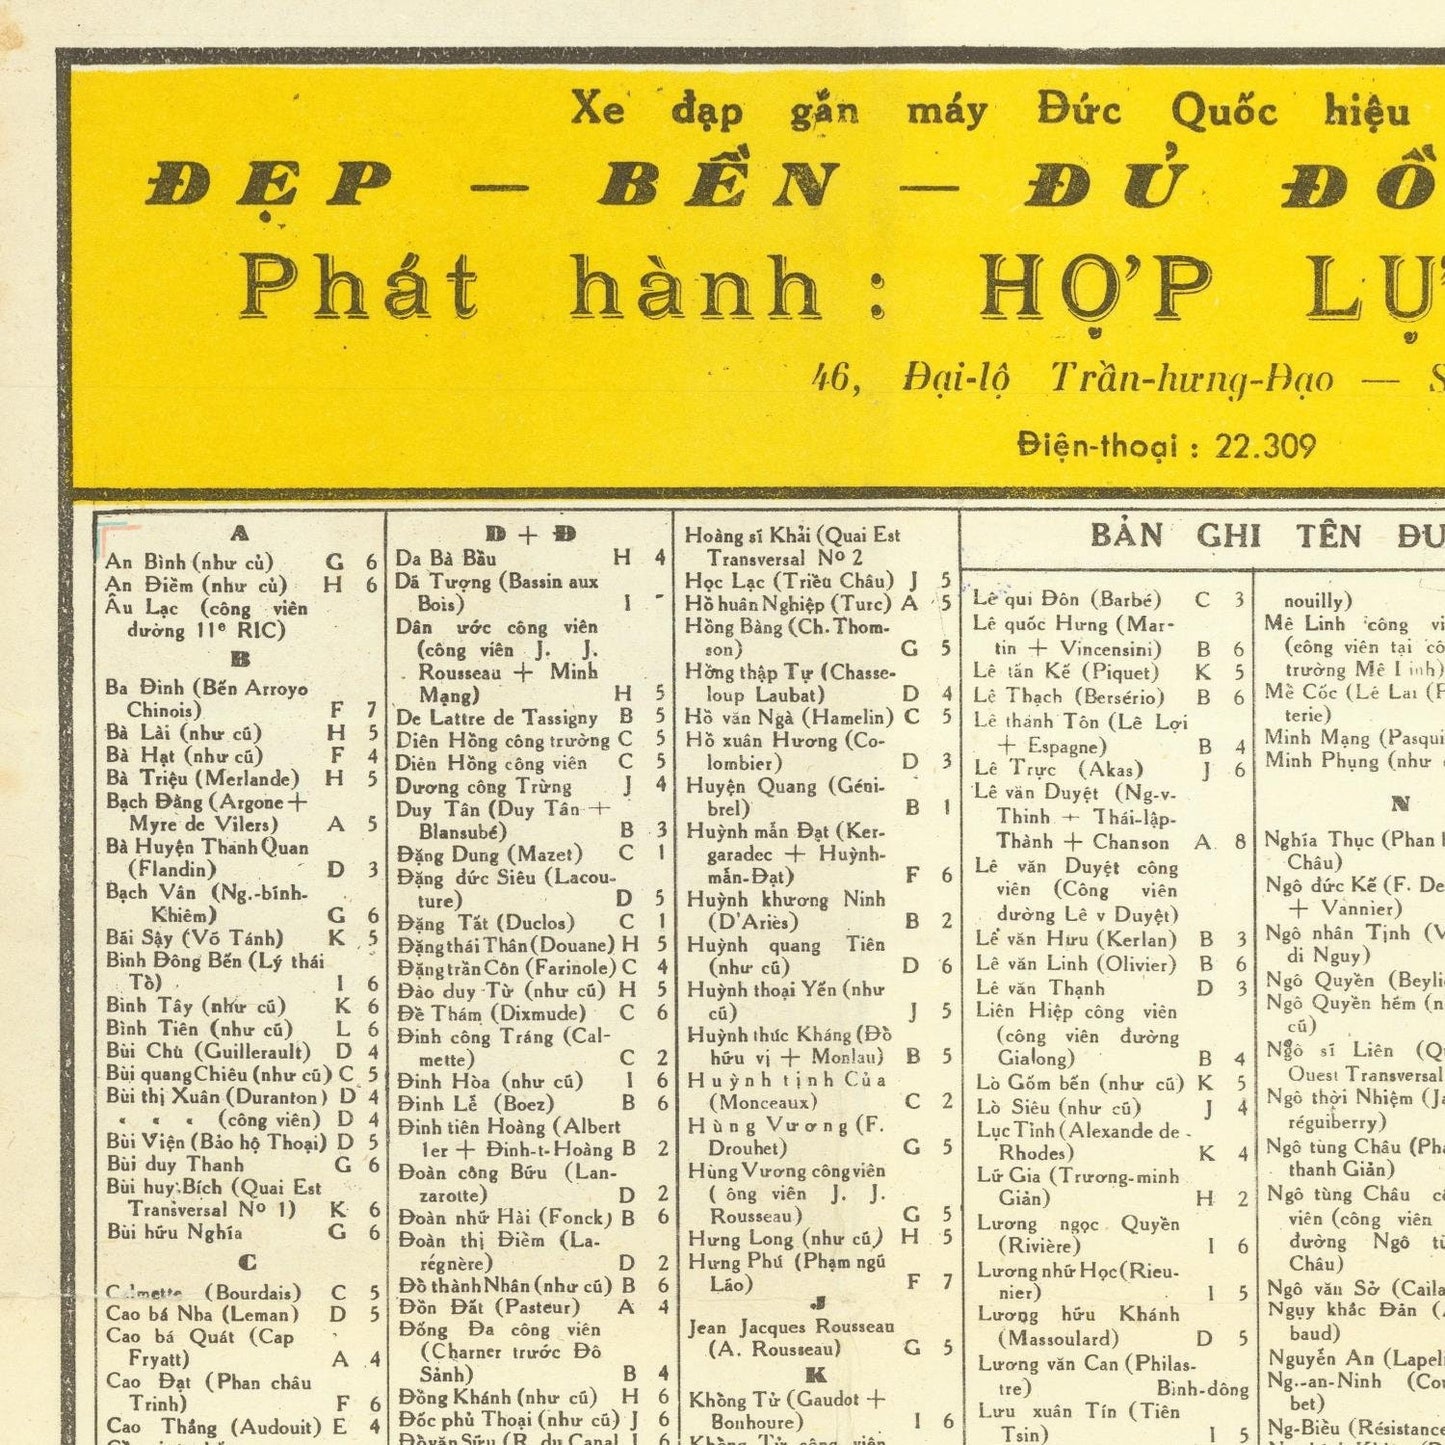 Xe đạp gắn máy Đức Quốc hiệu
ĐẸP — BỀN — ĐỦ ĐỒ
Phát hành : HỢP LỰ
46, Đại-lộ Trần-hưng-Đạo — S
Điện-thoại : 22.309
A
An Bình (như cũ) G 6
An Điềm (như cũ) H 6
Âu Lạc (công viên
đường 11e RIC)
B
Ba Đình (Bến Arroyo
Chinois) F 7
Bà Lài (như cũ) H 5
Bà Hạt (như cũ) F 4
Bà Triệu (Merlande) H 5
Bạch Đằng (Argone +
Myre de Vilers) A 5
Bà Huyện Thanh Quan
(Flandin) D 3
Bạch Vân (Ng.-bỉnh-
Khiêm) G 6
Bãi Sậy (Võ Tánh) K 5
Bình Đông Bến (Lý thái
Tồ) I 6
Bình Tây (như cũ) K 6
Bình Tiên (như cũ) L 6
Bùi Chu (Guillerault) D 4
Bùi quang Chiêu (như cũ) C 5
Bùi thị Xuân (Duranton) D 4
« « « (công viên) D 4
Bùi Viện (Bảo hộ Thoại) D 5
Bùi duy Thanh G 6
Bùi huy Bích (Quai Est
Transversal No 1) K 6
Bùi hữu Nghĩa G 6
C
Calmette (Bourdais) C 5
Cao bá Nha (Leman) D 5
Cao bá Quát (Cap
Fryatt) A 4
Cao Đạt (Phan châu
Trinh) F 6
Cao Thắng (Audouit) E 4
D + Đ
Da Bà Bầu H 4
Dá Tượng (Bassin aux
Bois) I
Dân ước công viên
(công viên J. J.
Rousseau + Minh
Mạng) H 5
De Lattre de Tassigny B 5
Diên Hồng công trường C 5
Diên Hồng công viên C 5
Dương công Trừng J 4
Duy Tân (Duy Tân +
Blansubé) B 3
Đặng Dung (Mazet) C 1
Đặng đức Siêu (Lacou-
ture) D 5
Đặng Tất (Duclos) C 1
Đặng thái Thân (Douane) H 5
Đặng trần Côn (Farinole) C 4
Đào duy Từ (như cũ) H 5
Đề Thám (Dixmude) C 6
Đinh công Tráng (Cal-
mette) C 2
Đinh Hòa (như cũ) I 6
Đinh Lễ (Boez) B 6
Đinh tiên Hoàng (Albert
1er + Đinh-t-Hoàng B 2
Đoàn công Bửu (Lan-
zarotte) D 2
Đoàn nhữ Hài (Fonck) B 6
Đoàn thị Điềm (La-
régnère) D 2
Đồ thành Nhân (như cũ) B 6
Đồn Đất (Pasteur) A 4
Đống Đa công viên
(Charner trước Đô
Sảnh) B 4
Đồng Khánh (như cũ) H 6
Đốc phủ Thoại (như cũ) J 6
Đỗ văn Sửu (R. du Canal I 6
Hoàng sĩ Khải (Quai Est
Transversal No 2
Học Lạc (Triều Châu) J 5
Hồ huân Nghiệp (Turc) A 5
Hồng Bàng (Ch. Thom-
son) G 5
Hồng thập Tự (Chasse-
loup Laubat) D 4
Hồ văn Ngà (Hamelin) C 5
Hồ xuân Hương (Co-
lombier) D 3
Huyện Quang (Géni-
brel) B 1
Huỳnh mẫn Đạt (Ker-
garadec + Huỳnh-
mẫn-Đạt) F 6
Huỳnh khương Ninh
(D'Ariès) B 2
Huỳnh quang Tiên
(như cũ) D 6
Huỳnh thoại Yến (như
cũ) J 5
Huỳnh thúc Kháng (Đỗ
hữu vị + Monlau) B 5
Huỳnh tịnh Của
(Monceaux) C 2
Hùng Vương (F.
Drouhet) G 5
Hùng Vương công viên
( ông viên J. J.
Rousseau) G 5
Hưng Long (như cũ) H 5
Hưng Phú (Phạm ngũ
Lão) F 7
J
Jean Jacques Rousseau
(A. Rousseau) G 5
K
Khồng Tử (Gaudot +
Bonhoure) I 6
Khồng Tử công viên
BẢN GHI TÊN ĐƯ
Lê qui Đôn (Barbé) C 3
Lê quốc Hưng (Mar-
tin + Vincensini) B 6
Lê tấn Kế (Piquet) K 5
Lê Thạch (Bersério) B 6
Lê thánh Tôn (Lê Lợi
+ Espagne) B 4
Lê Trực (Akas) J 6
Lê văn Duyệt (Ng-v-
Thinh + Thái-lập-
Thành + Chanson A 8
Lê văn Duyệt công
viên (Công viên
đường Lê v Duyệt)
Lê văn Hưu (Kerlan) B 3
Lê văn Linh (Olivier) B 6
Lê văn Thạnh D 3
Liên Hiệp công viên
(công viên đường
Gialong) B 4
Lò Gốm bến (như cũ) K 5
Lò Siêu (như cũ) J 4
Lục Tỉnh (Alexande de
Rhodes) K 4
Lữ Gia (Trương-minh
Giản) H 2
Lương ngọc Quyền
(Rivière) I 6
Lương nhữ Học (Rieu-
nier) I 5
Lương hữu Khánh
(Massoulard) D 5
Lương văn Can (Philas-
tre) Bình-đông
Lưu xuân Tín (Tiên
Tsin) I 5
nouilly)
Mê Linh công vi
(công viên tại cô
trường Mê Linh)
Mề Cốc (Lê Lai (F
terie)
Minh Mạng (Pasqui
Minh Phụng (như
N
Nghĩa Thục (Phan
Châu)
Ngô đức Kế (F. De
+ Vannier)
Ngô nhân Tịnh (V
di Nguy)
Ngô Quyền (Beyli
Ngô Quyền hẻm (n
cũ)
Ngô sĩ Liên (Qu
Ouest Transversal
Ngô thời Nhiệm (Ja
réguiberry)
Ngô tùng Châu (Pha
thanh Giản)
Ngô tùng Châu cô
viên (công viên
đường Ngô tù
Châu)
Ngô văn Sở (Caila
Ngụy khắc Đản (
baud)
Nguyễn An (Lapeli
Ng.-an-Ninh (Cou
bet)
Ng-Biểu (Résistance